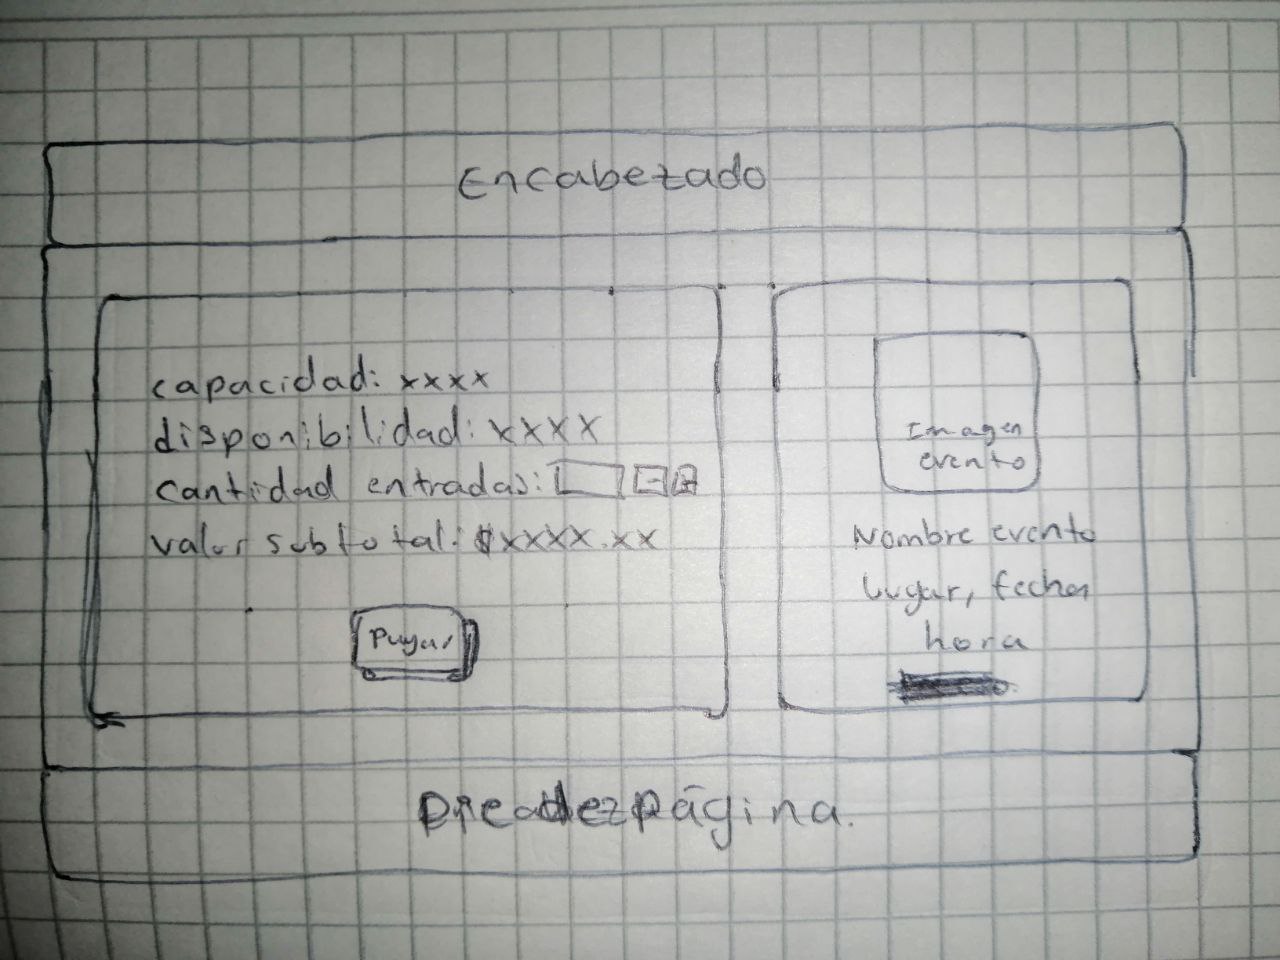 Encabezado
capacidad: xxxx
disponibilidad: xxxx
cantidad entradas: - +
valor subtotal: $xxxx.xx
Pagar
Imagen
evento
Nombre evento
lugar, fecha
hora
página.